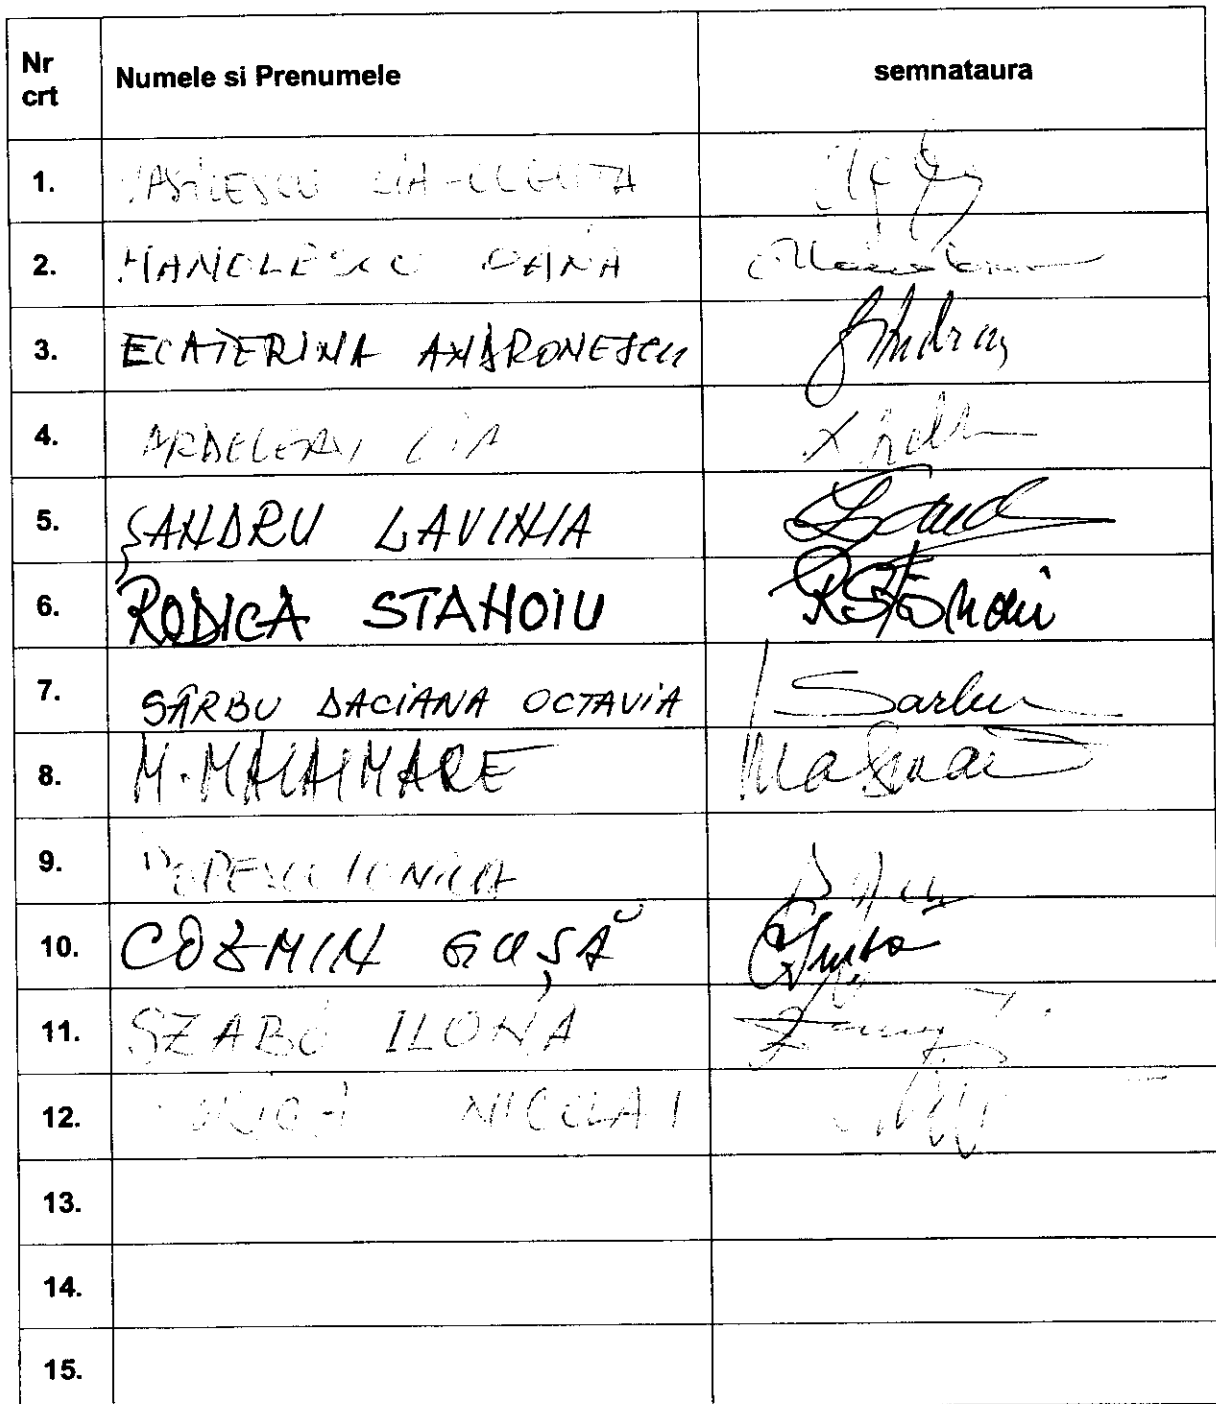 Nr crt Numele si Prenumele semnataura
1. VASILESCU LIA-OLGUTA
2. MANOLESCU OANA
3. ECATERINA ANDRONESCU
4. ARDELEAN LIA
5. ȘANDRU LAVINIA
6. RODICA STANOIU RStănoiu
7. SÂRBU DACIANA OCTAVIA Sarbu
8. M. MALAIMARE
9. POPESCU IONICA
10. COZMIN GUȘĂ Gusa
11. SZABÓ ILONA
12. NICOLAI
13.
14.
15.